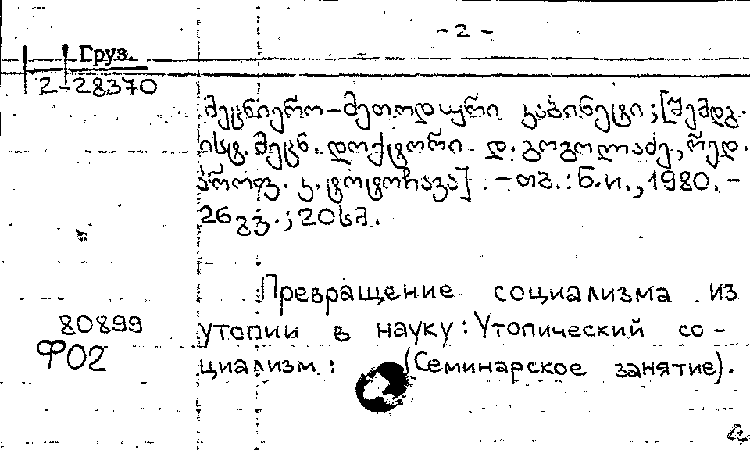 - 2 -
Груз.
2-28370
მეცნიერო-მეთოდური კაბინეტი; [შემდგ.
ისტ. მეცნ. დოქტორი დ. გოგოლაძე, რედ.
პროფ. კ. ტოტოჩავა]. - თბ. : ნ.ი., 1980. -
26 გვ. ; 20 სმ.
Превращение социализма из
80899 утопии в науку: Утопический со-
Ф02 циализм: (Семинарское занятие).